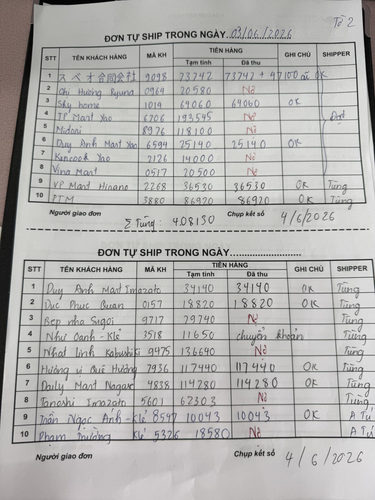 Tờ 2
ĐƠN TỰ SHIP TRONG NGÀY 03/06/2026
STT TÊN KHÁCH HÀNG MÃ KH TIỀN HÀNG GHI CHÚ SHIPPER
Tạm tính Đã thu
1 スペオ合同会社 9098 73742 73742 + 97100 OK
2 Chị Hương Ryuna 0964 20580 Nợ
3 Sky home 1014 69060 69060 OK
4 TP Mart Yao 6706 193545 Nợ
5 Midori 8976 118100 Nợ
6 Duy Anh Mart Yao 6594 25140 25140 OK
7 Kancook Yao 2126 14000 Nợ
8 Vina Mart 0517 20500 Nợ
9 VP Mart Hirano 2268 36530 36530 OK Tùng
10 PTM 3880 86920 86920 OK Tùng
Người giao đơn Σ Tùng : 408130 Chụp kết số 4/6/2026
ĐƠN TỰ SHIP TRONG NGÀY
STT TÊN KHÁCH HÀNG MÃ KH TIỀN HÀNG GHI CHÚ SHIPPER
Tạm tính Đã thu
1 Duy Anh Mart Imazato 34140 34140 OK Tùng
2 Đức Phúc Quán 0157 18820 18820 OK Tùng
3 Bếp nhà Sugoi 9717 79740 Nợ Tùng
4 Như Oanh - Klẻ 3518 11650 chuyển khoản Tùng
5 Nhật Linh Kabushiki 9475 136640 Nợ Tùng
6 Hương vị Quê Hương 7936 117440 117440 OK Tùng
7 Daily Mart Nagase 4838 114280 114280 OK Tùng
8 Tanoshi Imazato 5601 62303 Nợ Tùng
9 Trần Ngọc Anh - Klẻ 8597 10043 10043 OK A Tú
10 Phạm Trường Klẻ 5326 18580 Nợ A Tú
Người giao đơn Chụp kết số 4/6/2026